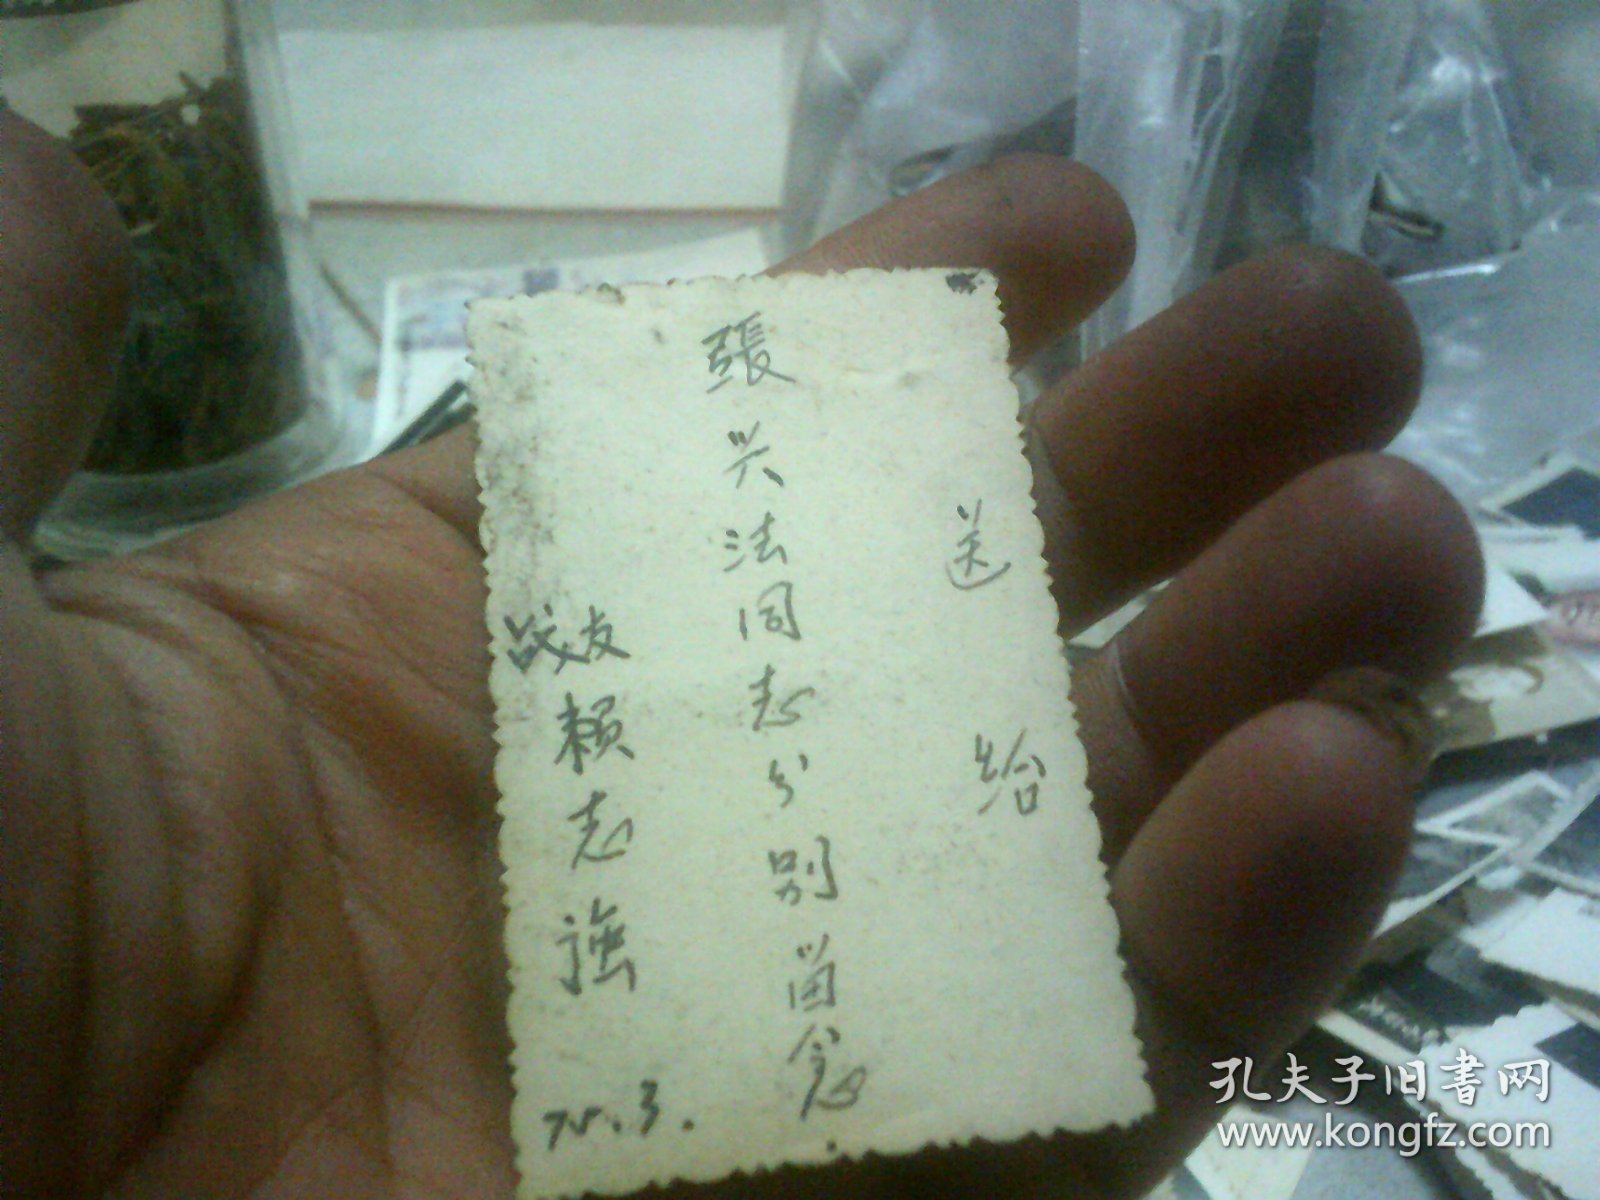 送给
張兴法同志分别留念.
战友賴志強
75.3.
孔夫子旧書网
www.kongfz.com